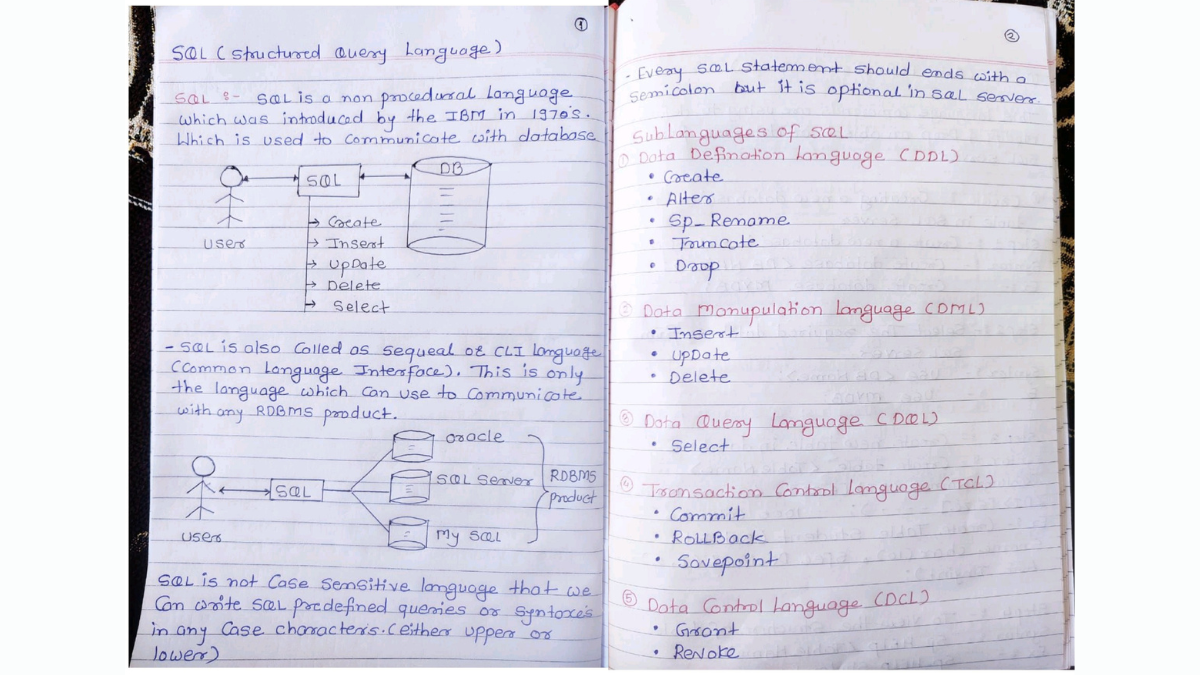 ①
SQL (Structured Query Language)
SQL :- SQL is a non procedural language
which was introduced by the IBM in 1970's.
Which is used to communicate with database
DB
SQL
User
→ Create
→ Insert
→ UpDate
→ Delete
→ Select
- SQL is also Called as sequeal or CLI language
(Common Language Interface). This is only
the language which Can use to Communicate
with any RDBMS product.
Oracle
SQL Server
RDBMS
product
SQL
My SQL
User
SQL is not Case Sensitive language that we
Can write SQL predefined queries or Syntaxes
in any Case characters. (either upper or
lower)
②
- Every SQL Statement Should ends with a
Semicolon but it is optional in SQL Server.
Sublanguages of SQL
① Data Defination Language (DDL)
• Create
• Alter
• Sp_Rename
• Truncate
• Drop
② Data Manupulation Language (DML)
• Insert
• UpDate
• Delete
③ Data Query Language (DQL)
• Select
④ Transaction Control Language (TCL)
• Commit
• RollBack
• Savepoint
⑤ Data Control Language (DCL)
• Grant
• Revoke